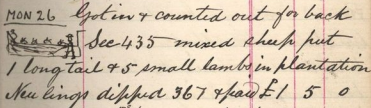 MON 26 Got in & counted out for back
Sec 435 mixed sheep put
1 long tail & 5 small lambs in plantation
New lings dipped 367 & paid £1 5 0